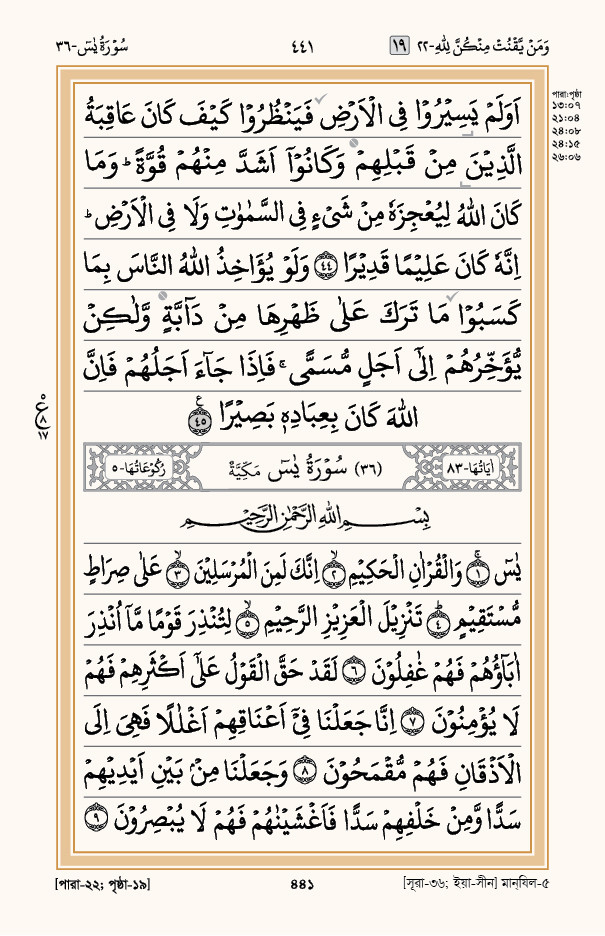 وَمَنْ يَّقْنُتْ مِنْكُنَّ لِلّٰهِ-٢٢ ١٩ ٤٤١ سُوْرَةُ يٰسٓ-٣٦
اَوَلَمْ يَسِيْرُوْا فِى الْاَرْضِ فَيَنْظُرُوْا كَيْفَ كَانَ عَاقِبَةُ
الَّذِيْنَ مِنْ قَبْلِهِمْ وَكَانُوْٓا اَشَدَّ مِنْهُمْ قُوَّةً ؕ وَمَا
كَانَ اللّٰهُ لِيُعْجِزَهٗ مِنْ شَىْءٍ فِى السَّمٰوٰتِ وَلَا فِى الْاَرْضِ ؕ
اِنَّهٗ كَانَ عَلِيْمًا قَدِيْرًا ﴿٤٤﴾ وَلَوْ يُؤَاخِذُ اللّٰهُ النَّاسَ بِمَا
كَسَبُوْا مَا تَرَكَ عَلٰى ظَهْرِهَا مِنْ دَآبَّةٍ وَّلٰكِنْ
يُّؤَخِّرُهُمْ اِلٰٓى اَجَلٍ مُّسَمًّى ۚ فَاِذَا جَآءَ اَجَلُهُمْ فَاِنَّ
اللّٰهَ كَانَ بِعِبَادِهٖ بَصِيْرًا ﴿٤٥﴾ ع
اٰيَاتُهَا-٨٣ (٣٦) سُوْرَةُ يٰسٓ مَكِّيَّةٌ رُكُوْعَاتُهَا-٥
بِسْمِ اللّٰهِ الرَّحْمٰنِ الرَّحِيْمِ
يٰسٓ ﴿١﴾ وَالْقُرْاٰنِ الْحَكِيْمِ ﴿٢﴾ اِنَّكَ لَمِنَ الْمُرْسَلِيْنَ ﴿٣﴾ عَلٰى صِرَاطٍ
مُّسْتَقِيْمٍ ﴿٤﴾ تَنْزِيْلَ الْعَزِيْزِ الرَّحِيْمِ ﴿٥﴾ لِتُنْذِرَ قَوْمًا مَّآ اُنْذِرَ
اٰبَآؤُهُمْ فَهُمْ غٰفِلُوْنَ ﴿٦﴾ لَقَدْ حَقَّ الْقَوْلُ عَلٰٓى اَكْثَرِهِمْ فَهُمْ
لَا يُؤْمِنُوْنَ ﴿٧﴾ اِنَّا جَعَلْنَا فِىْٓ اَعْنَاقِهِمْ اَغْلٰلًا فَهِىَ اِلَى
الْاَذْقَانِ فَهُمْ مُّقْمَحُوْنَ ﴿٨﴾ وَجَعَلْنَا مِنْۢ بَيْنِ اَيْدِيْهِمْ
سَدًّا وَّمِنْ خَلْفِهِمْ سَدًّا فَاَغْشَيْنٰهُمْ فَهُمْ لَا يُبْصِرُوْنَ ﴿٩﴾
পারা:পৃষ্ঠা
১৩:০৭
২১:০৪
২৪:০৮
২৪:১৫
২৬:০৬
٥
ع
٨
١٧
[পারা-২২; পৃষ্ঠা-১৯] ৪৪১ [সূরা-৩৬; ইয়া-সীন] মান্‌যিল-৫